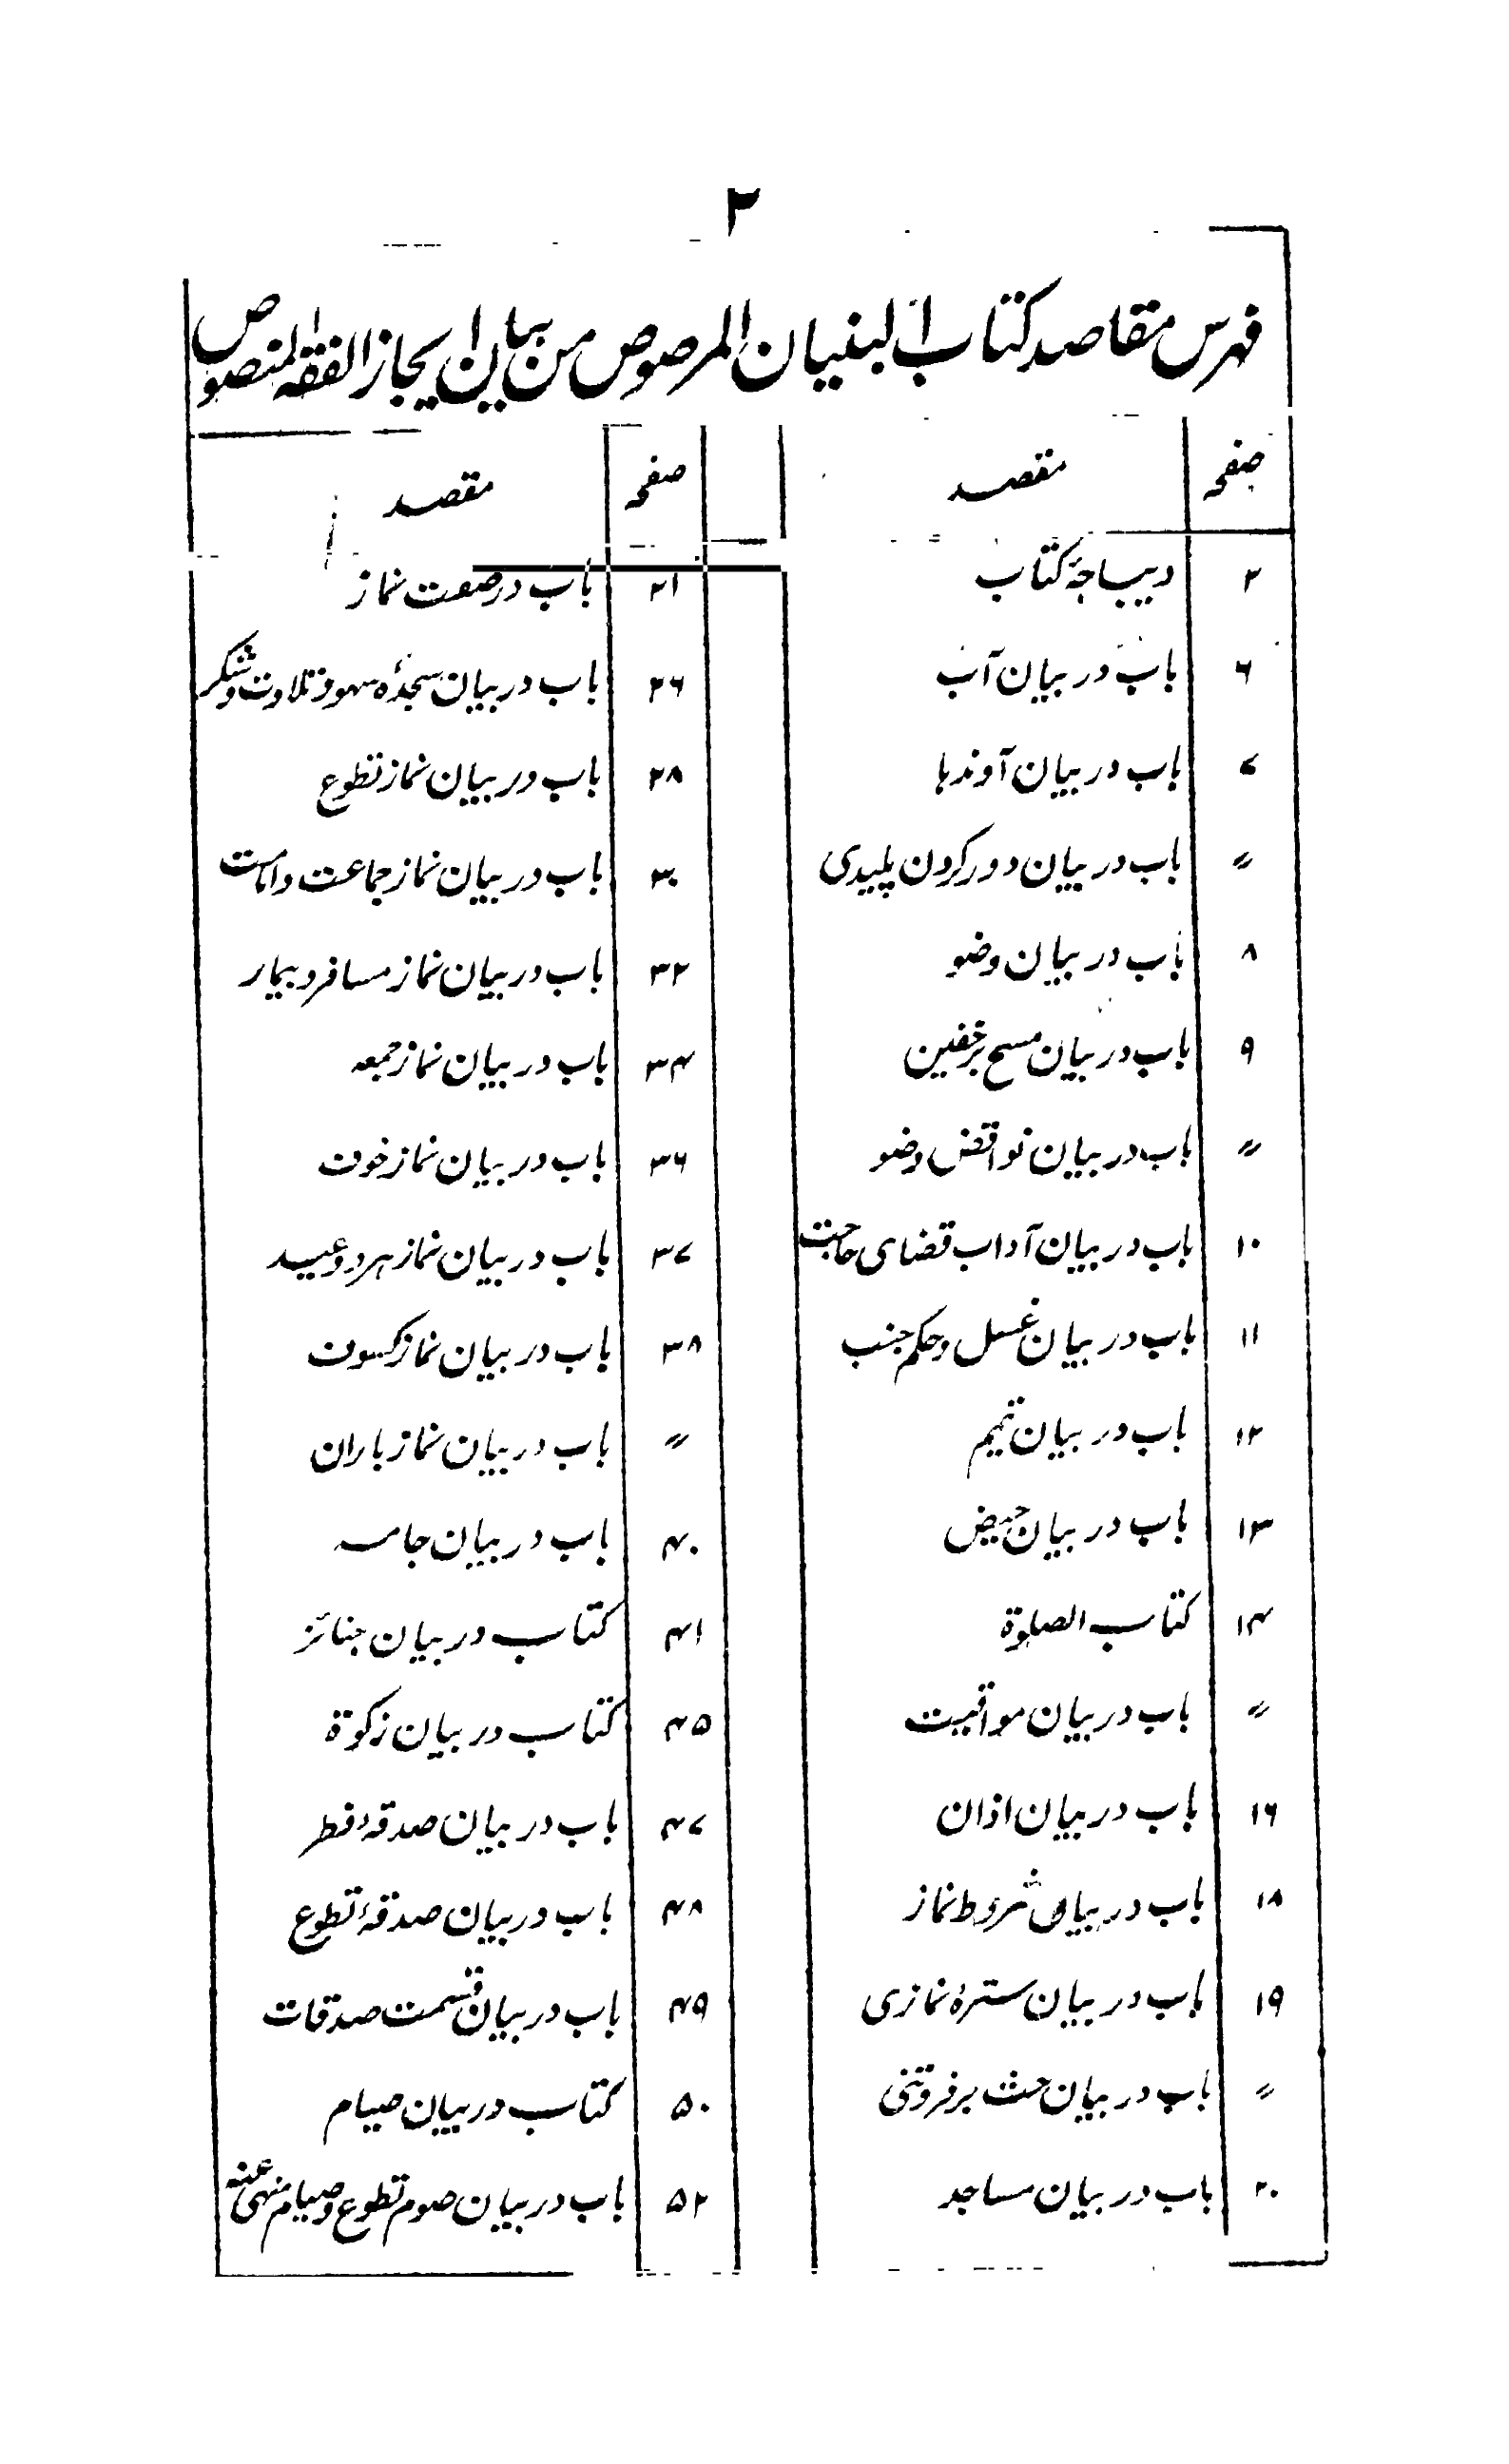 ۲
فهرس مقاصد کتاب البنیان المرصوص من بیان ایجاز الفقه المنصوص
صفحہ مقصد
۲ دیباجۂ کتاب
۶ باب در بیان آب
۷ باب در بیان آوندها
〃 باب در بیان دور کردن پلیدی
۸ باب در بیان وضو
۹ باب در بیان مسح بر خفین
〃 باب در بیان نواقض وضو
۱۰ باب در بیان آداب قضای حاجت
۱۱ باب در بیان غسل و حکم جنب
۱۲ باب در بیان تیمم
۱۳ باب در بیان حیض
۱۴ کتاب الصلوة
〃 باب در بیان مواقیت
۱۶ باب در بیان اذان
۱۸ باب در بیان شروط نماز
۱۹ باب در بیان سترۂ نمازی
〃 باب در بیان حث بر فروتنی
۲۰ باب در بیان مساجد
صفحہ مقصد
۲۱ باب در صفت نماز
۲۶ باب در بیان سجدۂ سهو و تلاوت و شکر
۲۸ باب در بیان نماز تطوع
۳۰ باب در بیان نماز جماعت و امامت
۳۲ باب در بیان نماز مسافر و بیمار
۳۴ باب در بیان نماز جمعه
۳۶ باب در بیان نماز خوف
۳۷ باب در بیان نماز هر دو عید
۳۸ باب در بیان نماز کسوف
〃 باب در بیان نماز باران
۴۰ باب در بیان جامه
۴۱ کتاب در بیان جنائز
۴۵ کتاب در بیان زکوة
۴۷ باب در بیان صدقۂ فطر
۴۸ باب در بیان صدقۂ تطوع
۴۹ باب در بیان قسمت صدقات
۵۰ کتاب در بیان صیام
۵۲ باب در بیان صوم تطوع و صیام منهی عنه